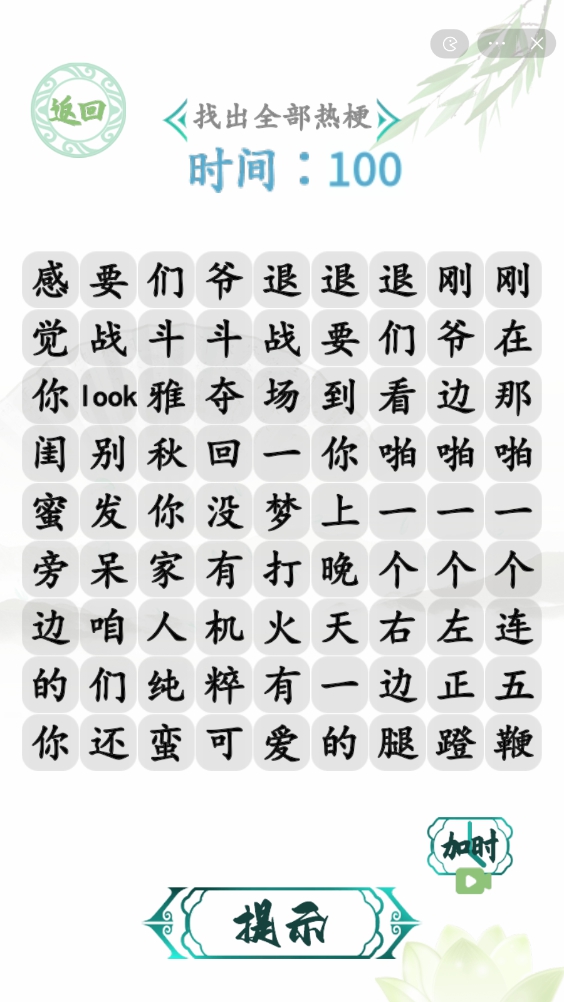 返回
找出全部热梗
时间：100
感要们爷退退退刚刚
觉战斗斗战要们爷在
你look雅夺场到看边那
闺别秋回一你啪啪啪
蜜发你没梦上一一一
旁呆家有打晚个个个
边咱人机火天右左连
的们纯粹有一边正五
你还蛮可爱的腿蹬鞭
加时
提示